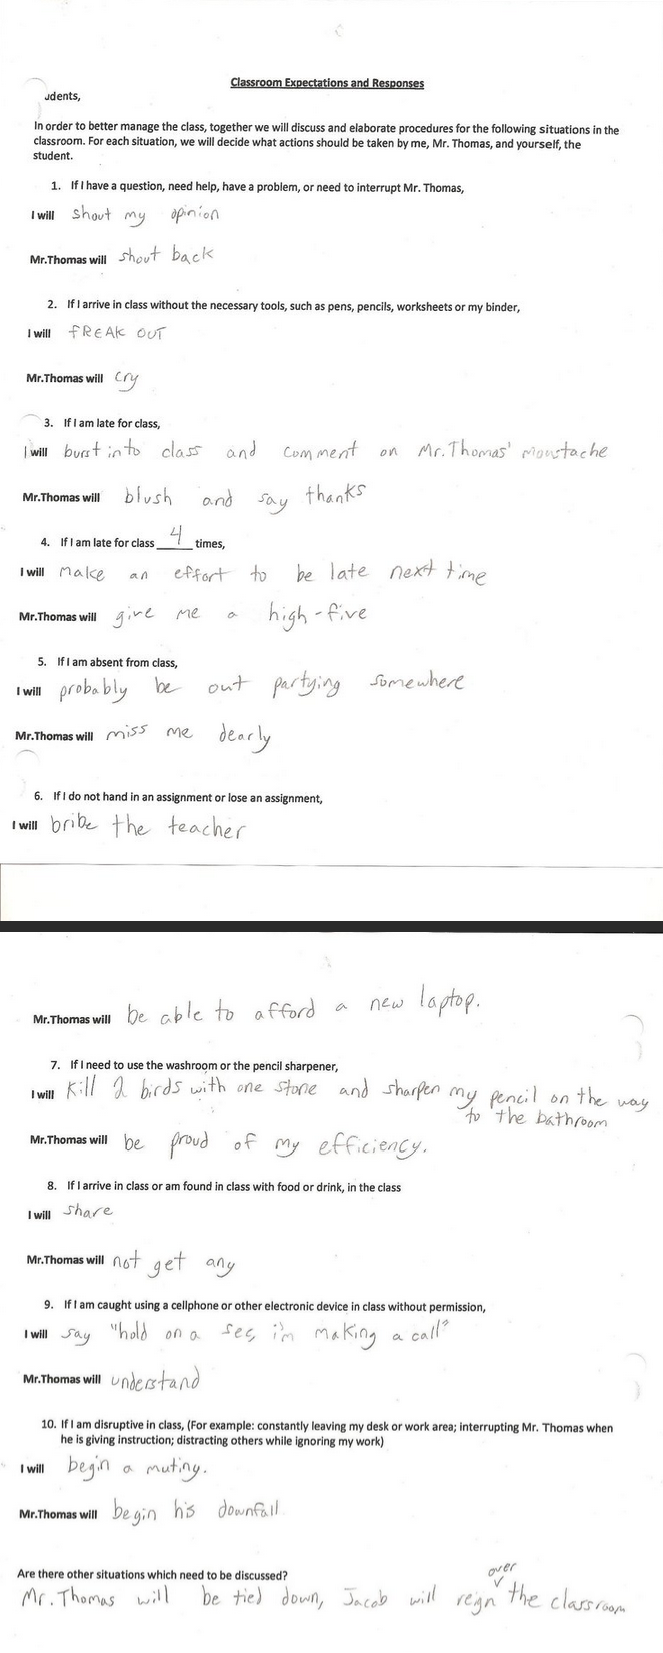 Classroom Expectations and Responses
udents,
In order to better manage the class, together we will discuss and elaborate procedures for the following situations in the
classroom. For each situation, we will decide what actions should be taken by me, Mr. Thomas, and yourself, the
student.
1. If I have a question, need help, have a problem, or need to interrupt Mr. Thomas,
I will shout my opinion
Mr.Thomas will shout back
2. If I arrive in class without the necessary tools, such as pens, pencils, worksheets or my binder,
I will FREAK OUT
Mr.Thomas will cry
3. If I am late for class,
I will burst into class and comment on Mr.Thomas' moustache
Mr.Thomas will blush and say thanks
4. If I am late for class 4 times,
I will make an effort to be late next time
Mr.Thomas will give me a high-five
5. If I am absent from class,
I will probably be out partying somewhere
Mr.Thomas will miss me dearly
6. If I do not hand in an assignment or lose an assignment,
I will bribe the teacher
Mr.Thomas will be able to afford a new laptop.
7. If I need to use the washroom or the pencil sharpener,
I will Kill 2 birds with one stone and sharpen my pencil on the way
to the bathroom
Mr.Thomas will be proud of my efficiency.
8. If I arrive in class or am found in class with food or drink, in the class
I will share
Mr.Thomas will not get any
9. If I am caught using a cellphone or other electronic device in class without permission,
I will say "hold on a sec, i'm making a call"
Mr.Thomas will understand
10. If I am disruptive in class, (For example: constantly leaving my desk or work area; interrupting Mr. Thomas when
he is giving instruction; distracting others while ignoring my work)
I will begin a mutiny.
Mr.Thomas will begin his downfall
Are there other situations which need to be discussed?
Mr. Thomas will be tied down, Jacob will reign over the classroom